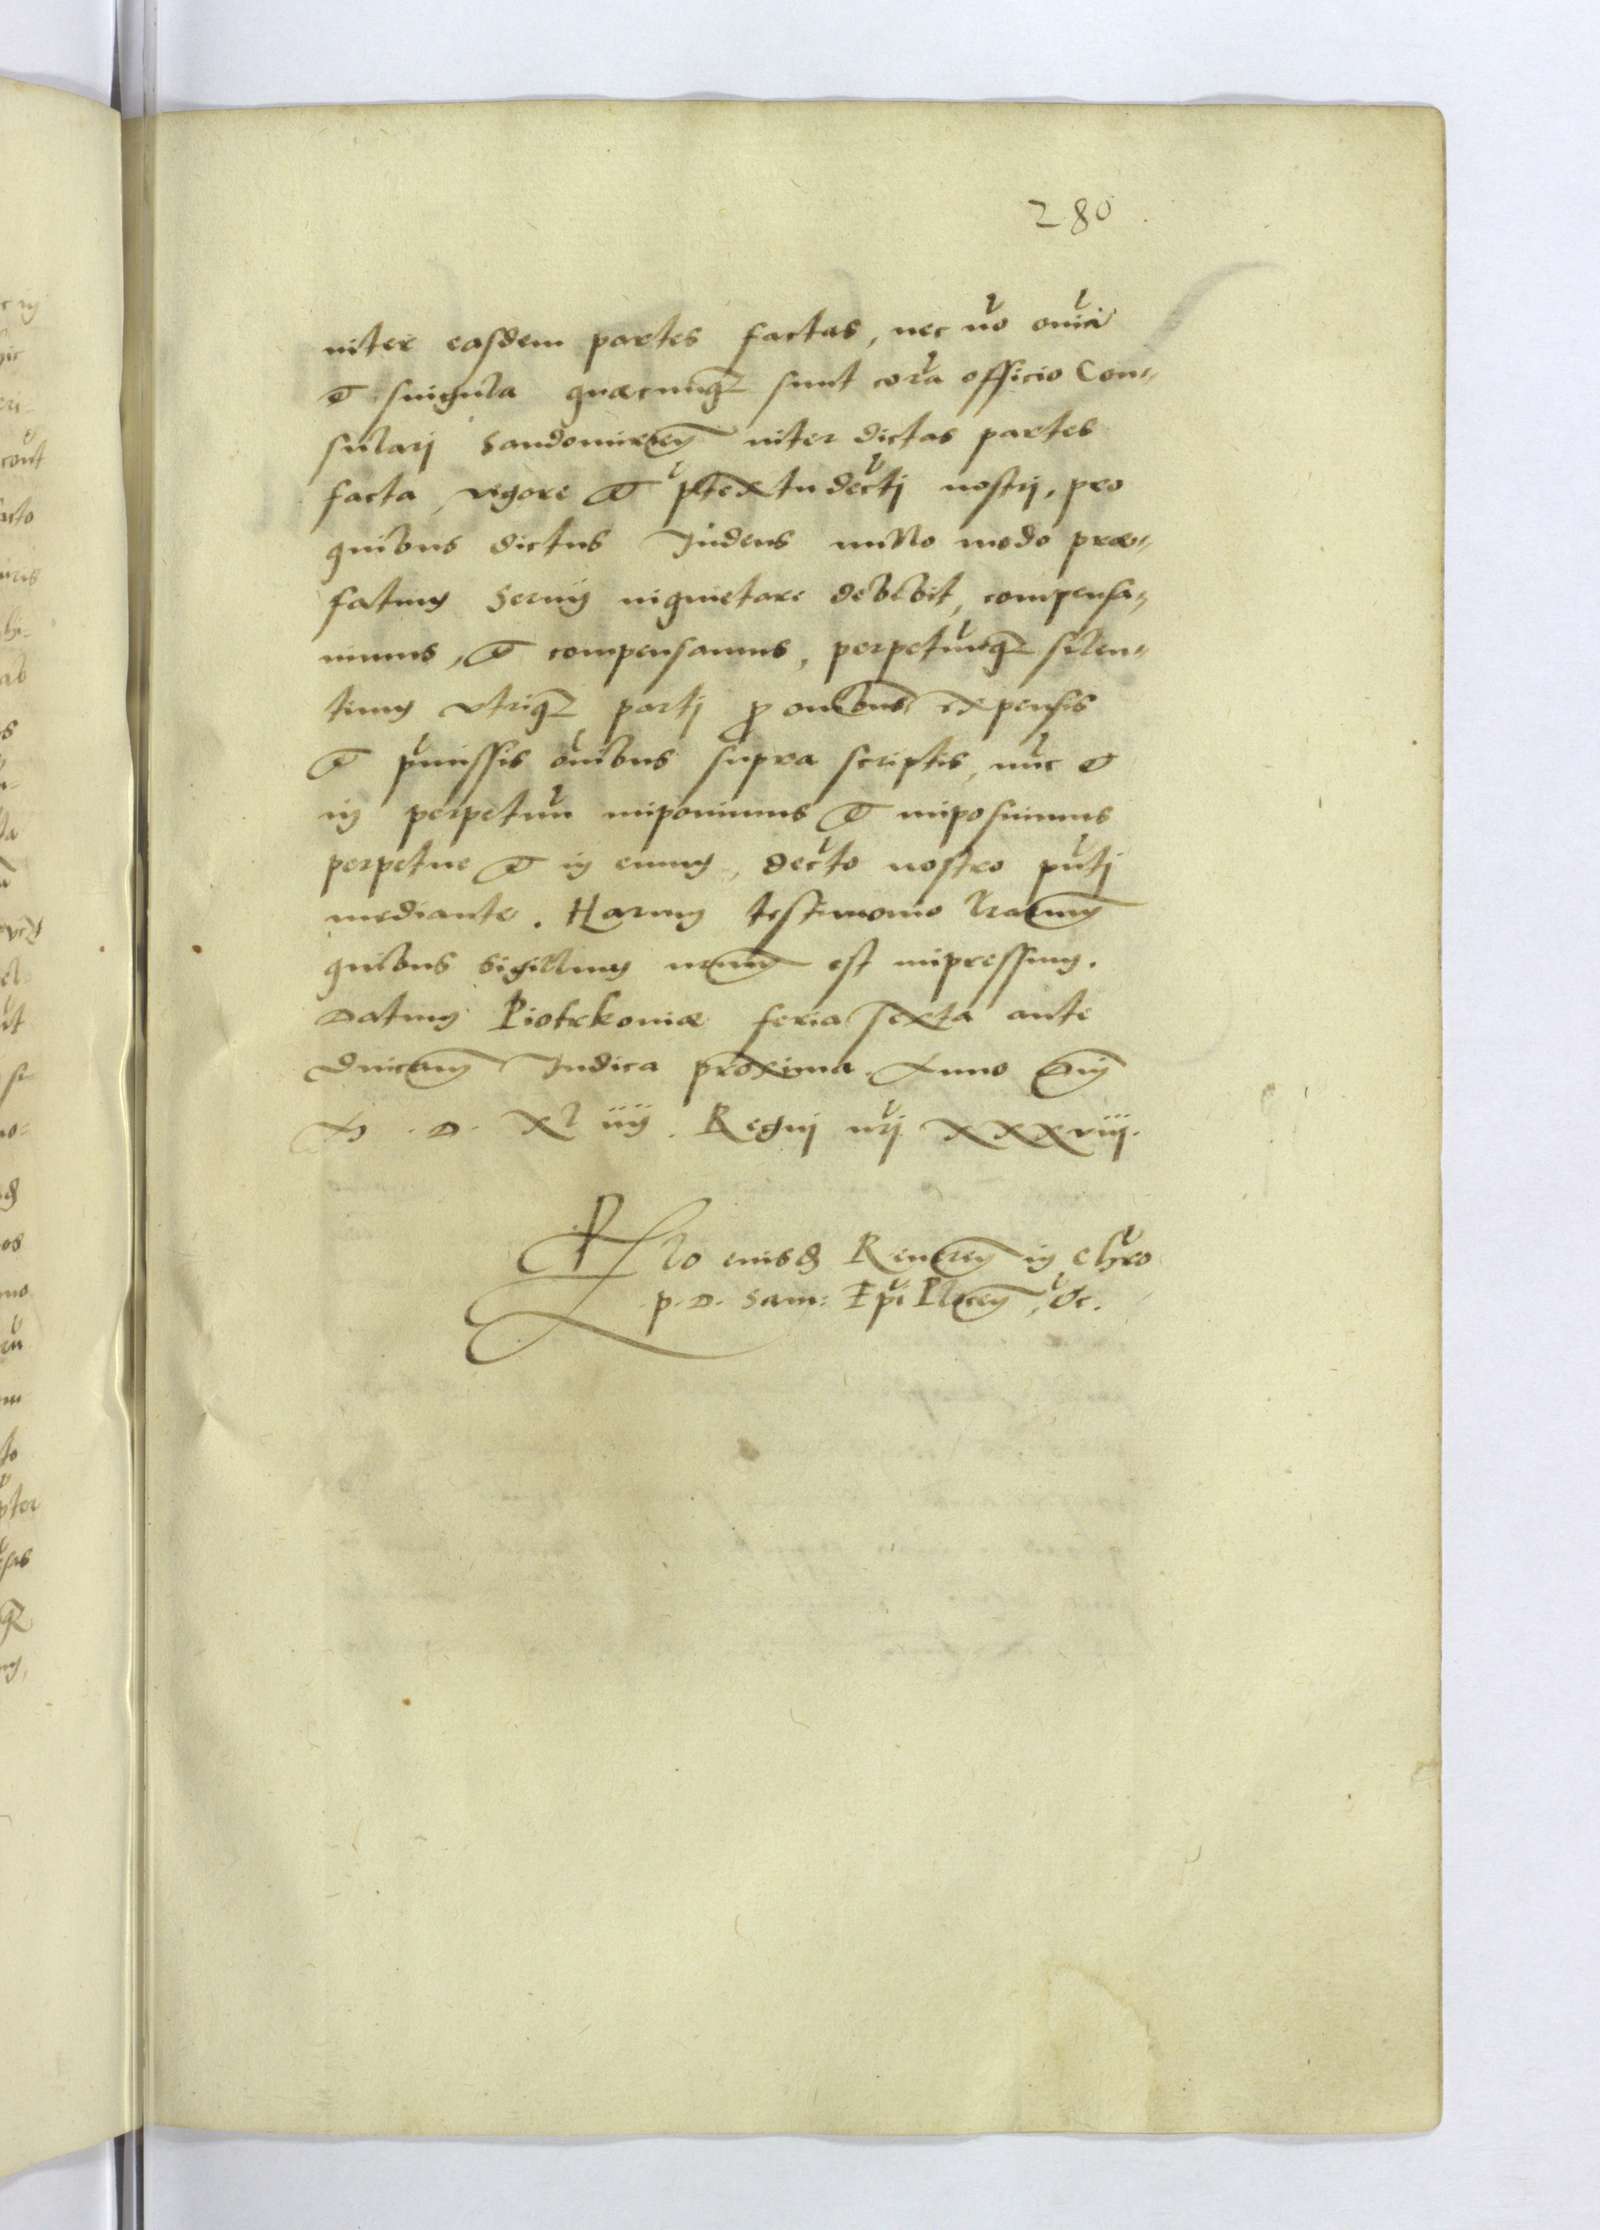 280
inter easdem partes factas, nec nō oīa
et singula quæcunqȝ sunt corā officio Con„
sulari Sandomirien̄ inter dictas partes
facta, vigore et p̄textu decrti nostri, pro
quibus dictus Iudeus nullo modo præ„
fatum Serny inquietare debebit, compensa„
uimus, et compensamus, perpetuūqȝ silen„
tium vtriqȝ parti ꝓ omībus expensis
et p̄missis oībus supra scriptis, nūc et
in perpetuū imponimus et imposuimus
perpetue et in euum, decrto nostro pn̄ti
mediante. Harum testimonio lr̄arum
quibus Sigillum nr̄um est impressum.
Datum Piotrkoniæ feria sexta ante
Dnicam Iudica proxima. Anno Dnj
M . D . XL iiij . Regni nr̄i XXXviij .
Rlo eiusdȝ Reuereñ in Chrō
p. D. Sam: Ep̄i Plocen̄, &c.